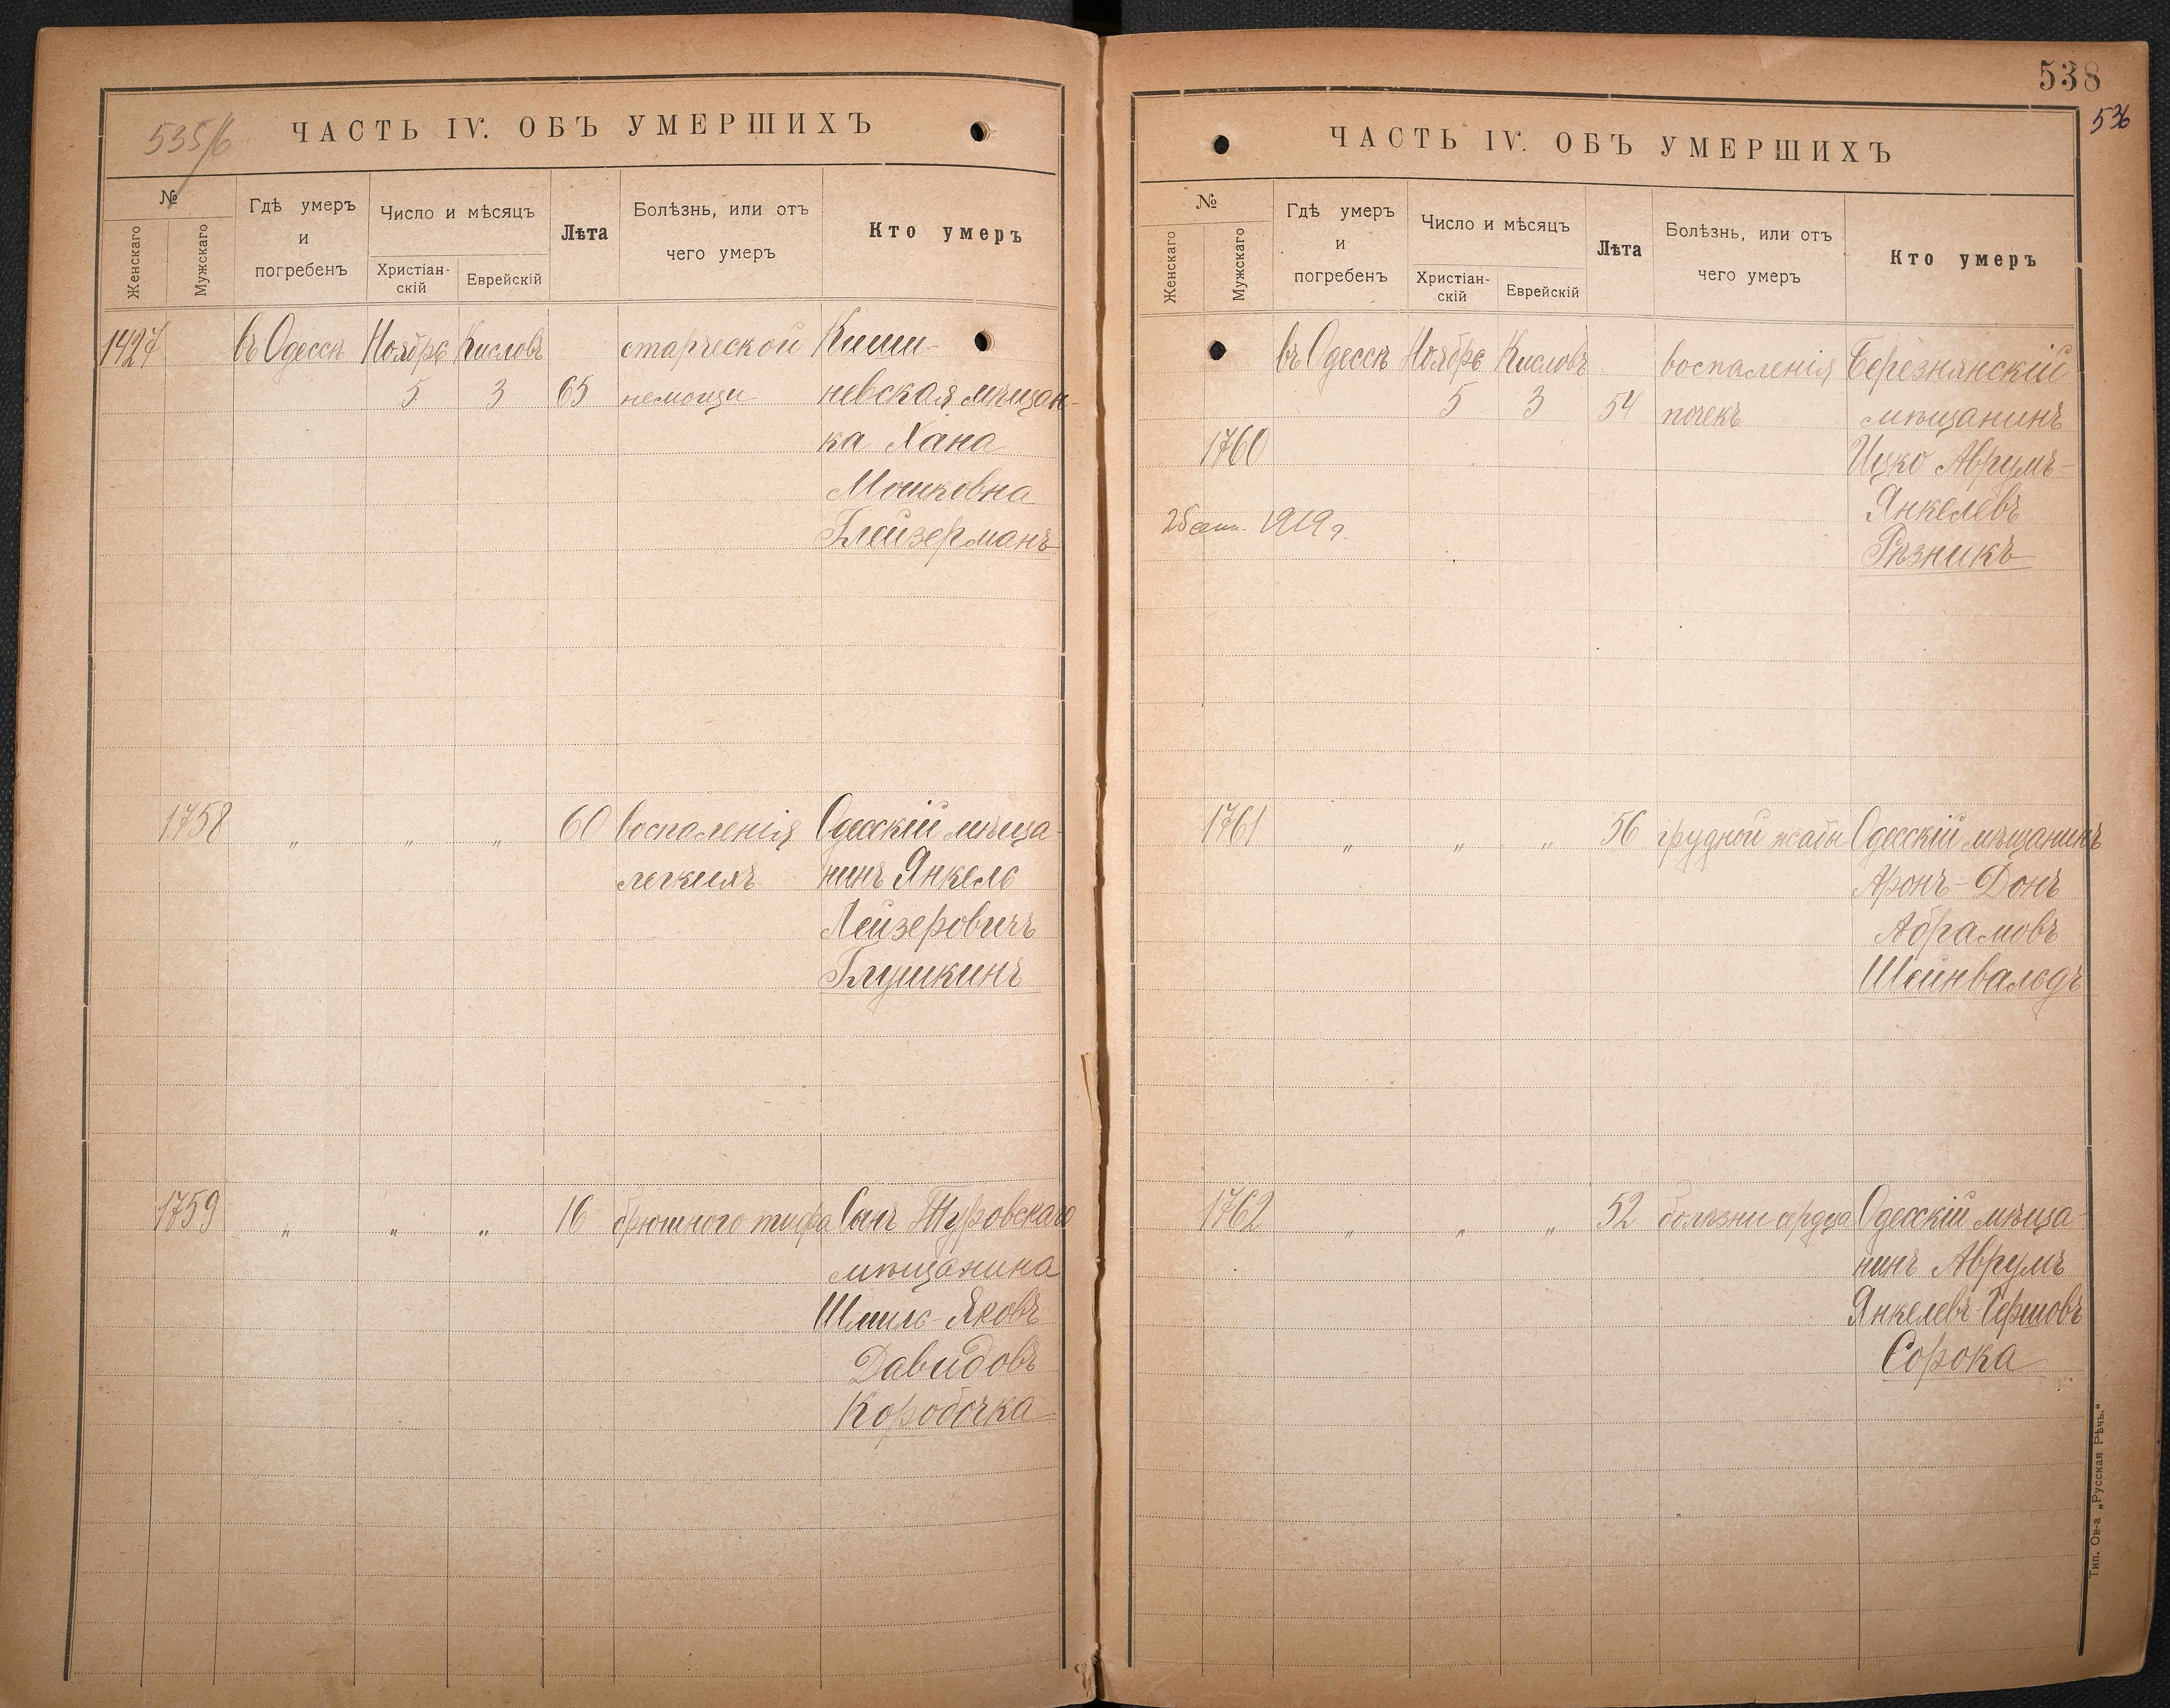 535/6
ЧАСТЬ IV. ОБЪ УМЕРШИХЪ
№
Женскаго
Мужскаго
Гдѣ умеръ
и
погребенъ
Число и мѣсяцъ
Христіан-
скій
Еврейскій
Лѣта
Болѣзнь, или отъ
чего умеръ
Кто умеръ
1427 въ Одессѣ Ноябрь Кисловъ старческой Киши-
5 3 65 немощи невская мѣщан-
ка Хана
Мошковна
Глейзерманъ
1758 „ „ „ 60 воспаленія Одесскій мѣща-
легкихъ нинъ Янкель
Лейзеровичъ
Глушкинъ
1759 „ „ „ 16 брюшного тифа Сынъ Туровскаго
мѣщанина
Шмиль-Яковъ
Давидовъ
Коробочка
538
536
ЧАСТЬ IV. ОБЪ УМЕРШИХЪ
№
Женскаго
Мужскаго
Гдѣ умеръ
и
погребенъ
Число и мѣсяцъ
Христіан-
скій
Еврейскій
Лѣта
Болѣзнь, или отъ
чего умеръ
Кто умеръ
въ Одессѣ Ноябрь Кисловъ воспаленія Березнянскій
5 3 54 почекъ мѣщанинъ
1760 Ицко Аврумъ-
Янкелевъ
1919 г.
Рѣзникъ
1761 „ „ „ 56 грудной жабы Одесскій мѣщанинъ
Аронъ-Донъ
Абрамовъ
Шейнвальдъ
1762 „ „ „ 52 болѣзни сердца Одесскій мѣща-
нинъ Аврумъ
Янкелевъ-Гершовъ
Сорока
Тип. Ов-а „Русская Рѣчь.“